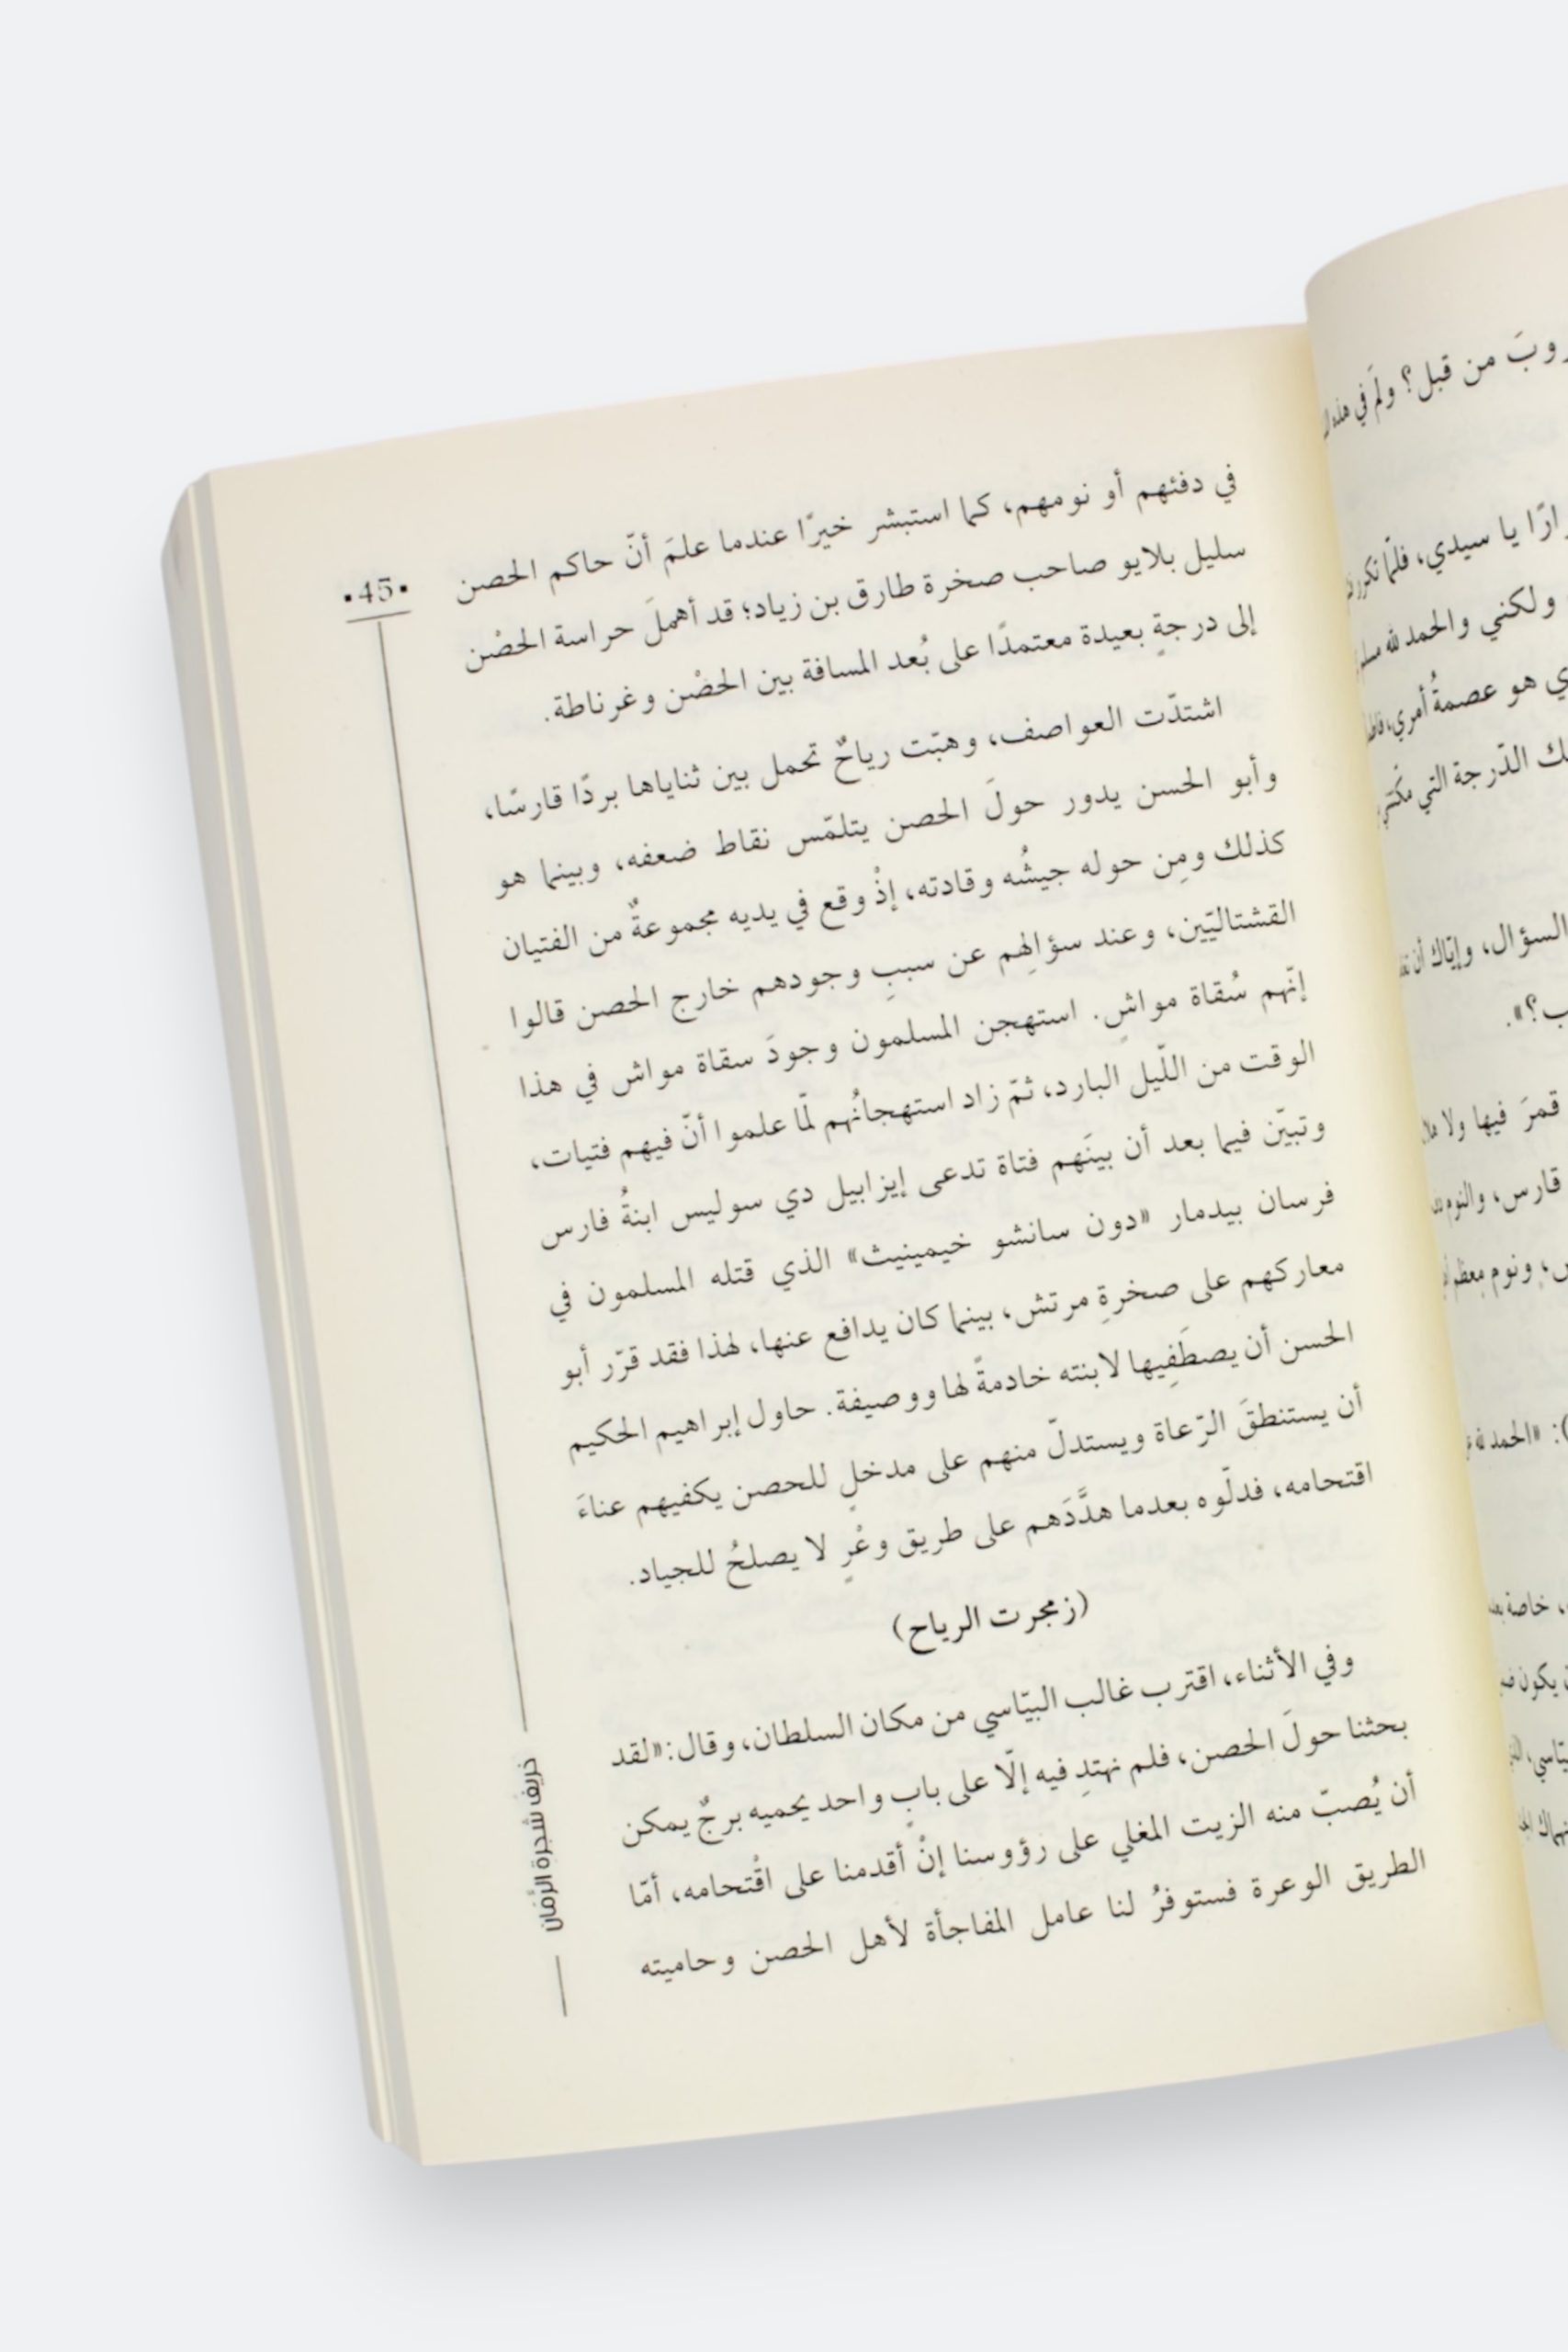 روبَ من قبل؟ ولَم في هذه
ارًا يا سيدي، فلمّا تكرر
ولكني والحمد لله
ي هو عصمةُ أمري،
ك الدّرجة التي
السؤال، وإيّاك أن
ب؟».
قمرَ فيها ولا
قارس، والنوم
س؛ ونوم معظم
): «الحمد لله
، خاصة بعد
ن يكون
في دفئهم أو نومهم، كما استبشر خيرًا عندما علمَ أنّ حاكم الحصن
سليل بلايو صاحب صخرة طارق بن زياد؛ قد أهملَ حراسة الحصْن
إلى درجةٍ بعيدة معتمدًا على بُعد المسافة بين الحصْن وغرناطة.
اشتدّت العواصف، وهبّت رياحٌ تحمل بين ثناياها بردًا قارسًا،
وأبو الحسن يدور حولَ الحصن يتلمّس نقاط ضعفه، وبينما هو
كذلك ومِن حوله جيشُه وقادته، إذْ وقع في يديه مجموعةٌ من الفتيان
القشتاليّين، وعند سؤالِهم عن سببِ وجودهم خارج الحصن قالوا
إنّهم سُقاة مواشٍ. استهجن المسلمون وجودَ سقاة مواش في هذا
الوقت من اللّيل البارد، ثمّ زاد استهجانُهم لمّا علموا أنّ فيهم فتيات،
وتبيّن فيما بعد أن بينَهم فتاة تدعى إيزابيل دي سوليس ابنةُ فارس
فرسان بيدمار «دون سانشو خيمينيث» الذي قتله المسلمون في
معاركهم على صخرةِ مرتش، بينما كان يدافع عنها، لهذا فقد قرّر أبو
الحسن أن يصطَفِيها لابنته خادمةً لها ووصيفة. حاول إبراهيم الحكيم
أن يستنطقَ الرّعاة ويستدلّ منهم على مدخلٍ للحصن يكفيهم عناءَ
اقتحامه، فدلّوه بعدما هدَّدَهم على طريق وعْرٍ لا يصلحُ للجياد.
(زمجرت الرياح)
وفي الأثناء، اقترب غالب البيّاسي من مكان السلطان، وقال: «لقد
بحثنا حولَ الحصن، فلم نهتدِ فيه إلّا على بابٍ واحد يحميه برجٌ يمكن
أن يُصبّ منه الزيت المغلي على رؤوسنا إنْ أقدمنا على اقْتحامه، أمّا
الطريق الوعرة فستوفرُ لنا عامل المفاجأة لأهل الحصن وحاميته
•45•
خريف شجرة الرّمّان